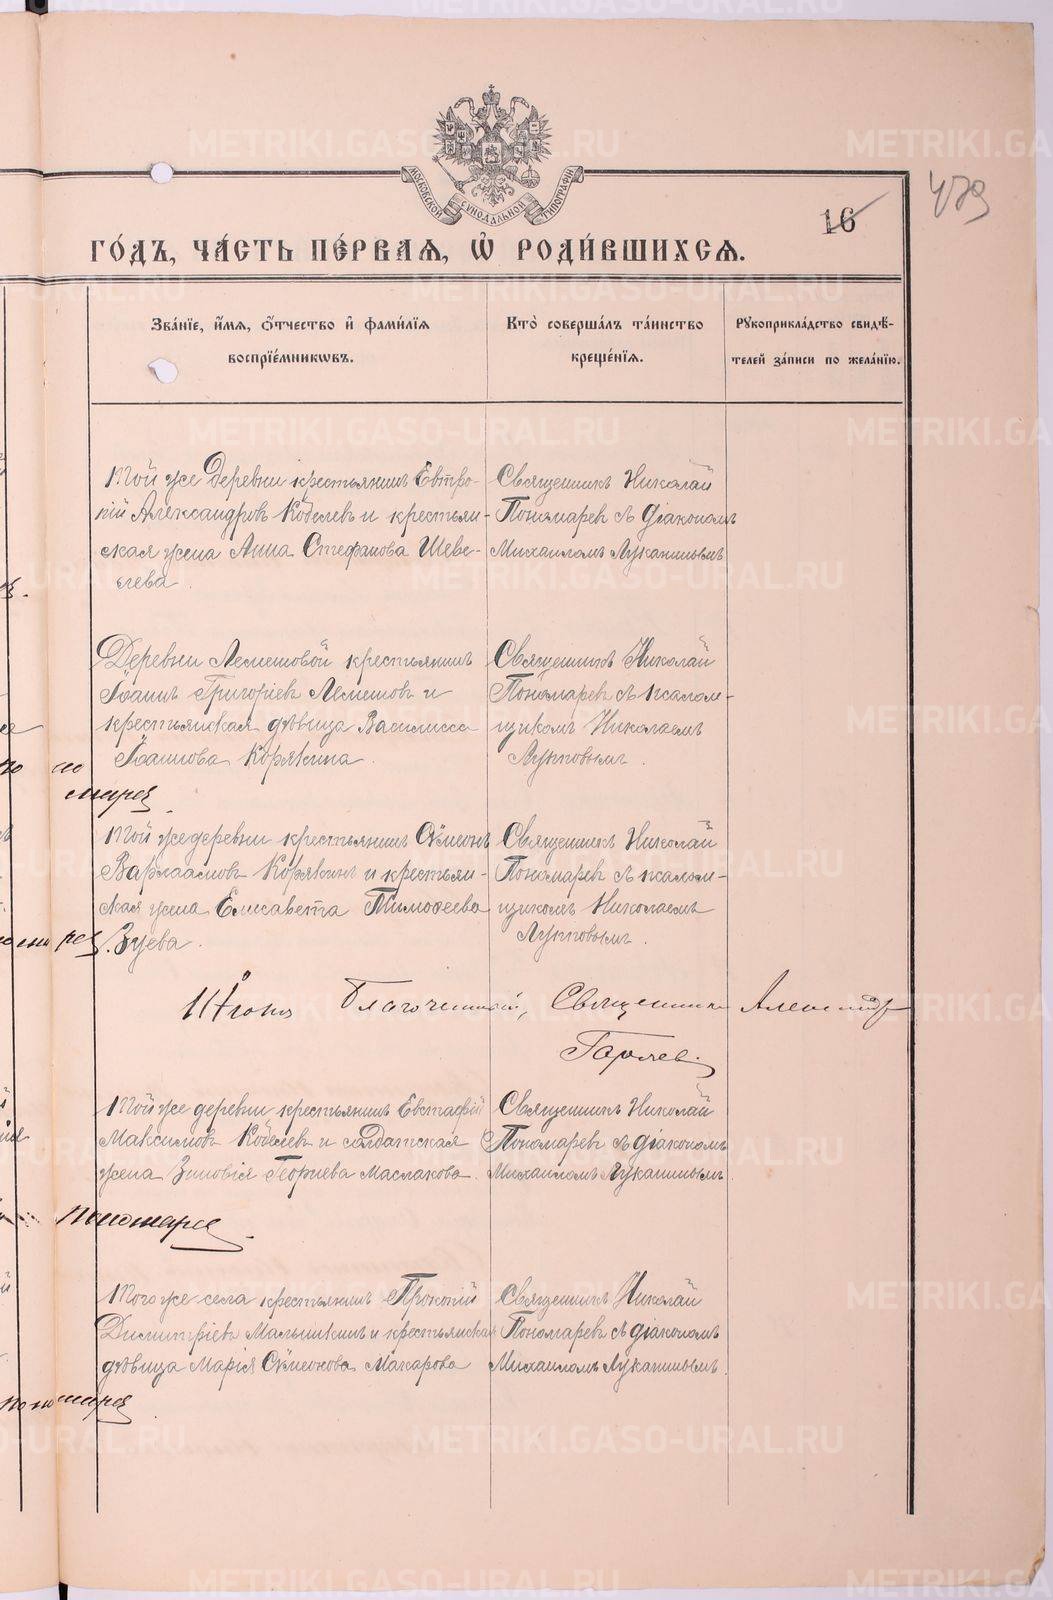 МОСКОВСКОЙ СѴНОДАЛЬНОЙ ТИПОГРАФІИ
479
16
ГО́ДЪ, ЧА́СТЬ ПЕ́РВАѦ, Ѡ҆ РОДИ́ВШИХСѦ.
Зва́нїе, и҆́мѧ, ѻ҆́тчество и҆ фами́лїѧ воспрїе́мникѡвъ.
Кто̀ соверша́лъ та́инство креще́нїѧ.
Рꙋкоприкла́дство свидѣ́телей за́писи по жела́нїю.
Той же Деревни крестьянинъ Евтро-
пій Александровъ Кобелевъ и крестьян-
ская жена Анна Стефанова Шеве-
лева.
Священникъ Николай
Пономаревъ съ діакономъ
Михаиломъ Луканинымъ
Деревни Лемешовой крестьянинъ
Іоаннъ Григоріевъ Лемешовъ и
крестьянская дѣвица Василисса
Іоаннова Корякина.
Священникъ Николай
Пономаревъ съ псалом-
щикомъ Николаемъ
Луповымъ.
Той же деревни крестьянинъ Сѵмеонъ
Варлаамовъ Корякинъ и крестьян-
ская жена Елисавета Тимоѳеева
Зуева.
Священникъ Николай
Пономаревъ съ псалом-
щикомъ Николаемъ
Луповымъ.
Благочинный, Священникъ Александръ
Той же деревни крестьянинъ Евстафій
Максимовъ Кобелевъ и солдатская
жена Зиновія Георгіева Маслакова.
Священникъ Николай
Пономаревъ съ діакономъ
Михаиломъ Луканинымъ.
Пономарев
Того же села крестьянинъ Прокопій
Димитріевъ Мальшкинъ и крестьянская
дѣвица Марія Сѵмеонова Макарова
Священникъ Николай
Пономаревъ съ діакономъ
Михаиломъ Луканинымъ.
Пономарев